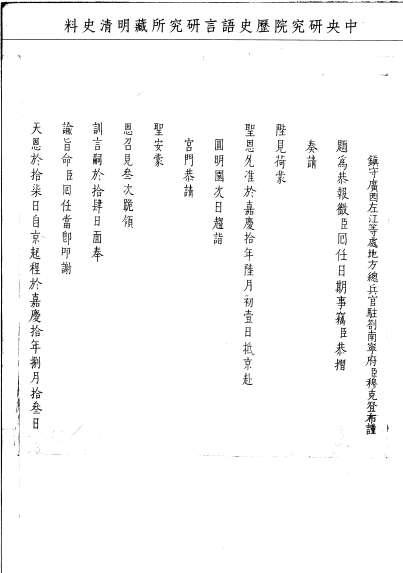 中央研究院歷史語言研究所藏明清史料
鎮守廣西左江等處地方總兵官駐劄南寧府臣穆克登布謹
題為恭報微臣囘任日期事竊臣恭摺
奏請
陛見荷蒙
聖恩允准於嘉慶拾年陸月初壹日抵京赴
圓明園次日趨詣
宮門恭請
聖安蒙
恩召見叁次跪領
訓言嗣於拾肆日面奉
諭旨命臣囘任當卽叩謝
天恩於拾柒日自京起程於嘉慶拾年捌月拾叁日